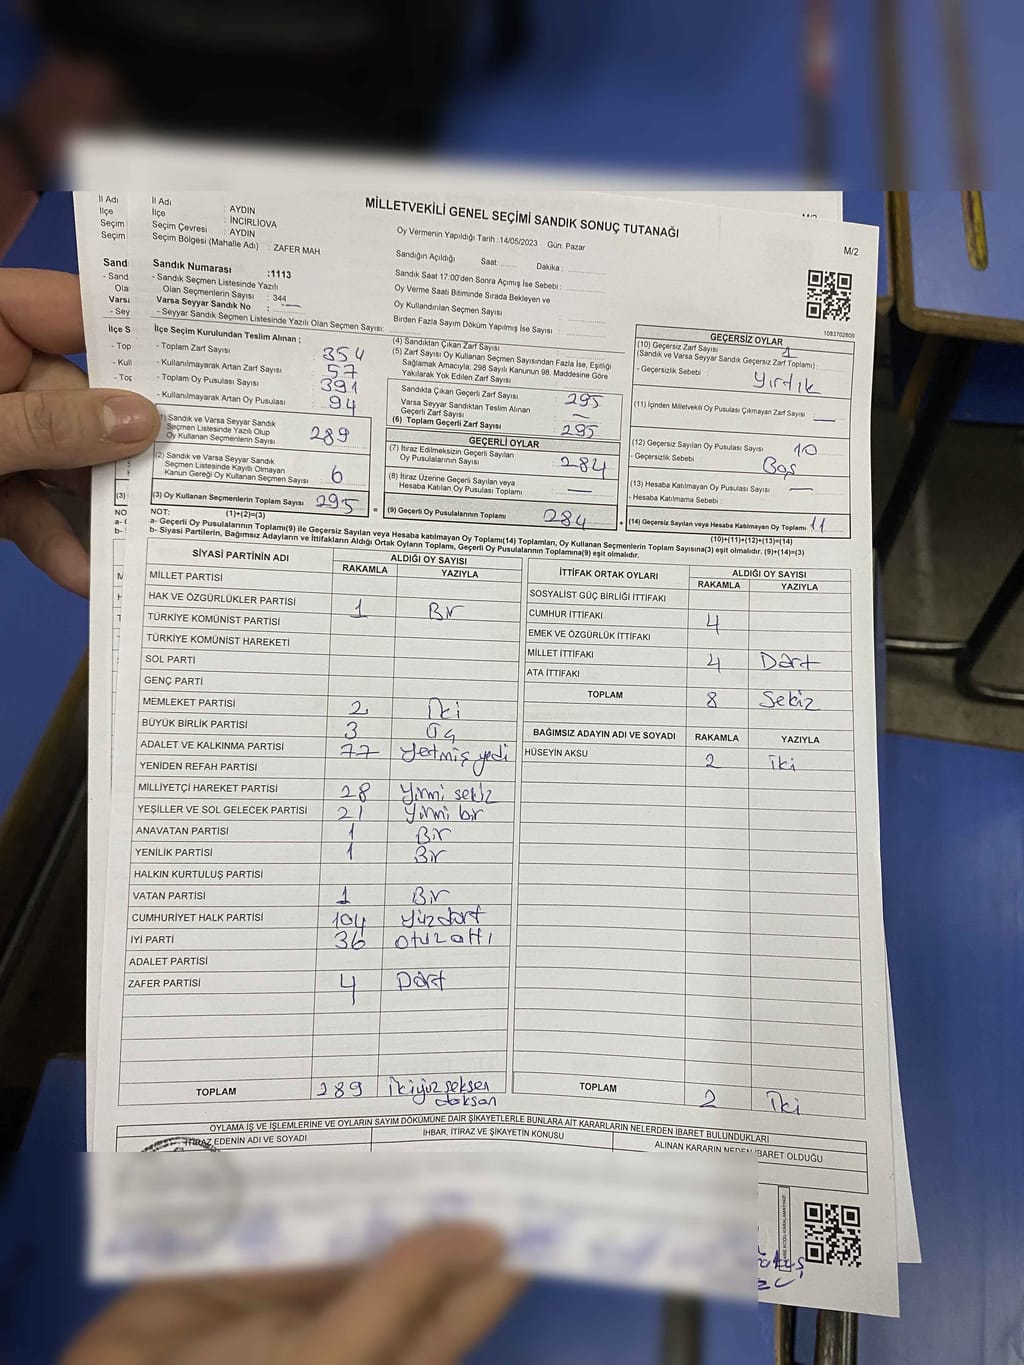 İl Adı
İlçe
Seçim
Seçim
Sand
- Sand
Ola
Varsa
- Sey
İlçe S
- Top
- Kull
- Top
İl Adı : AYDIN
İlçe : İNCİRLİOVA
Seçim Çevresi : AYDIN
Seçim Bölgesi (Mahalle Adı) : ZAFER MAH
MİLLETVEKİLİ GENEL SEÇİMİ SANDIK SONUÇ TUTANAĞI
M/2
Oy Vermenin Yapıldığı Tarih : 14/05/2023 Gün: Pazar
Sandığın Açıldığı Saat: Dakika :
Sandık Saat 17:00'den Sonra Açımış İse Sebebi :
Oy Verme Saati Bitiminde Sırada Bekleyen ve
Oy Kullandırılan Seçmen Sayısı
Birden Fazla Sayım Döküm Yapılmış İse Sayısı
1083702800
Sandık Numarası :1113
- Sandık Seçmen Listesinde Yazılı
Olan Seçmenlerin Sayısı : 344
Varsa Seyyar Sandık No : —
- Seyyar Sandık Seçmen Listesinde Yazılı Olan Seçmen Sayısı:
İlçe Seçim Kurulundan Teslim Alınan ;
- Toplam Zarf Sayısı : 354
- Kullanılmayarak Artan Zarf Sayısı : 57
- Toplam Oy Pusulası Sayısı : 391
- Kullanılmayarak Artan Oy Pusulası : 94
(1) Sandık ve Varsa Seyyar Sandık
Seçmen Listesinde Yazılı Olup
Oy Kullanan Seçmenlerin Sayısı 289
(2) Sandık ve Varsa Seyyar Sandık
Seçmen Listesinde Kayıtlı Olmayan
Kanun Gereği Oy Kullanan Seçmen Sayısı 6
(3) Oy Kullanan Seçmenlerin Toplam Sayısı 295
(4) Sandıktan Çıkan Zarf Sayısı
(5) Zarf Sayısı Oy Kullanan Seçmen Sayısından Fazla İse, Eşitliği
Sağlamak Amacıyla; 298 Sayılı Kanunun 98. Maddesine Göre
Yakılarak Yok Edilen Zarf Sayısı
Sandıkta Çıkan Geçerli Zarf Sayısı 295
Varsa Seyyar Sandıktan Teslim Alınan
Geçerli Zarf Sayısı —
(6) Toplam Geçerli Zarf Sayısı 295
GEÇERLİ OYLAR
(7) İtiraz Edilmeksizin Geçerli Sayılan
Oy Pusulalarının Sayısı 284
(8) İtiraz Üzerine Geçerli Sayılan veya
Hesaba Katılan Oy Pusulası Toplamı —
= (9) Geçerli Oy Pusulalarının Toplamı 284 +
GEÇERSİZ OYLAR
(10) Geçersiz Zarf Sayısı 1
(Sandık ve Varsa Seyyar Sandık Geçersiz Zarf Toplamı) :
- Geçersizlik Sebebi : Yırtık
(11) İçinden Milletvekili Oy Pusulası Çıkmayan Zarf Sayısı —
(12) Geçersiz Sayılan Oy Pusulası Sayısı 10
- Geçersizlik Sebebi : Boş
(13) Hesaba Katılmayan Oy Pusulası Sayısı —
- Hesaba Katılmama Sebebi :
(14) Geçersiz Sayılan veya Hesaba Katılmayan Oy Toplamı 11
NOT: (1)+(2)=(3)
(10)+(11)+(12)+(13)=(14)
a- Geçerli Oy Pusulalarının Toplamı(9) ile Geçersiz Sayılan veya Hesaba katılmayan Oy Toplamı(14) Toplamları, Oy Kullanan Seçmenlerin Toplam Sayısına(3) eşit olmalıdır. (9)+(14)=(3)
b- Siyasi Partilerin, Bağımsız Adayların ve İttifakların Aldığı Ortak Oyların Toplamı, Geçerli Oy Pusulalarının Toplamına(9) eşit olmalıdır.
SİYASİ PARTİNİN ADI ALDIĞI OY SAYISI
RAKAMLA YAZIYLA
MİLLET PARTİSİ
HAK VE ÖZGÜRLÜKLER PARTİSİ 1 Bir
TÜRKİYE KOMÜNİST PARTİSİ
TÜRKİYE KOMÜNİST HAREKETİ
SOL PARTİ
GENÇ PARTİ
MEMLEKET PARTİSİ 2 İki
BÜYÜK BİRLİK PARTİSİ 3 Üç
ADALET VE KALKINMA PARTİSİ 77 Yetmiş yedi
YENİDEN REFAH PARTİSİ
MİLLİYETÇİ HAREKET PARTİSİ 28 Yirmi sekiz
YEŞİLLER VE SOL GELECEK PARTİSİ 21 Yirmi bir
ANAVATAN PARTİSİ 1 Bir
YENİLİK PARTİSİ 1 Bir
HALKIN KURTULUŞ PARTİSİ
VATAN PARTİSİ 1 Bir
CUMHURİYET HALK PARTİSİ 104 Yüzdört
İYİ PARTİ 36 otuzaltı
ADALET PARTİSİ
ZAFER PARTİSİ 4 Dört
TOPLAM 289 İkiyüz seksen
doksan
İTTİFAK ORTAK OYLARI ALDIĞI OY SAYISI
RAKAMLA YAZIYLA
SOSYALİST GÜÇ BİRLİĞİ İTTİFAKI
CUMHUR İTTİFAKI 4
EMEK VE ÖZGÜRLÜK İTTİFAKI
MİLLET İTTİFAKI 4 Dört
ATA İTTİFAKI
TOPLAM 8 Sekiz
BAĞIMSIZ ADAYIN ADI VE SOYADI RAKAMLA YAZIYLA
HÜSEYİN AKSU 2 iki
TOPLAM 2 İki
OYLAMA İŞ VE İŞLEMLERİNE VE OYLARIN SAYIM DÖKÜMÜNE DAİR ŞİKAYETLERLE BUNLARA AİT KARARLARIN NELERDEN İBARET BULUNDUKLARI
İTİRAZ EDENİN ADI VE SOYADI İHBAR, İTİRAZ VE ŞİKAYETİN KONUSU ALINAN KARARIN NEDEN İBARET OLDUĞU